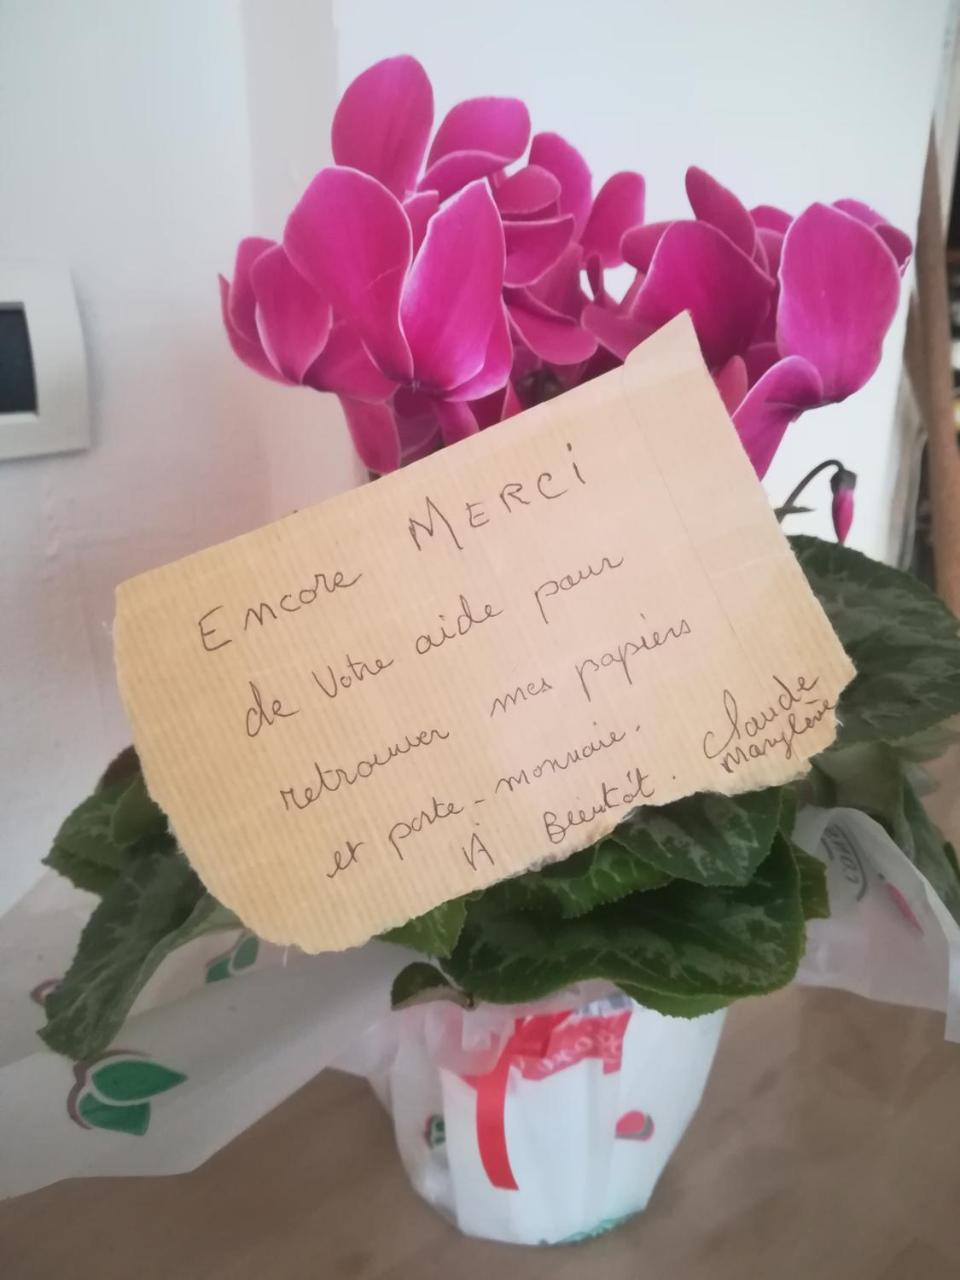 Encore MERCi
de Votre aide pour
retrouver mes papiers
et porte-monnaie.
À Bientôt. Claude
Marylène